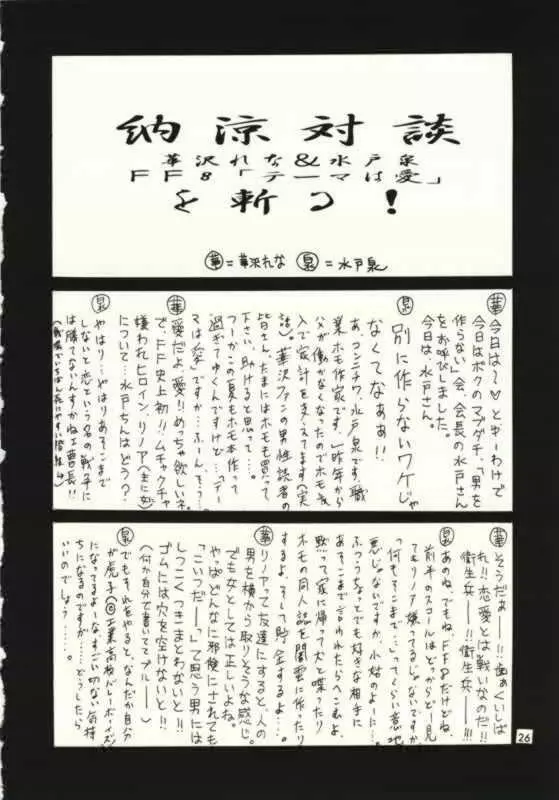 納涼対談
華沢れな&水戸泉
FF8「テーマは愛」
を斬る!
華=華沢れな 泉=水戸泉
華 今日は〜♡とゆーわけで
今日はボクのマブダチ、「男を
作らない」会、会長の水戸さん
をお呼びしました。
今日は、水戸さん。
泉 別に作らないワケじゃ
なくてなぁぁ!!
あ、コンニチワ、水戸泉です。職
業ホモ作家です。昨年から
父が働かなくなったのでホモ収
入で家計を支えてます(実
話)。華沢ファンの男性読者の
皆さん、たまにはホモも買って
下さい、助けると思って…。
つーかこの夏もホモ本作って
過ぎてゆくんですけど…「テー
マは愛」ですか…ふーん、そう…。
華 愛だよ、愛!!めちゃ欲しいネ。
で、FF史上初!!ムチャクチャ
嫌われヒロイン、リノア(主に女)
について…水戸さんはどう?
泉 やはり…やはりあそこまで
しないと恋という名の戦争に
は勝てないんすかね工曹長!!
華 そうだぁ──!!歯ぁくいしば
れ!!恋愛とは戦いなのだ!!
衛生兵──!!衛生兵──!!!
泉 あのね、でもね、FF8だけどね、
前半のスコールはどっからどー見
てもリノア嫌ってるじゃないですか。
「何もそこまで…」ってくらい意地
悪じゃないですか、小姑のように…。
ふつうちょっとでも好きな相手に
あそこまで言われたらへこむよ。
黙って家に帰って犬と喋ったり
ホモの同人誌を闇雲に作ったり
するよ。そして貯金するよ…。
華 リノアって友達にすると、人の
男を横から取りそうな感じ。
でも女としては正しいよね。
やっぱどんなに邪険にされても
「こいつだ──」って思う男には
しつこくつきまとわないと!!
ゴムには穴を空けないと!!
(何か自分で書いててブルー──)
泉 でもそれをやると、なんだか自分
が虎子(©工業高校バレーボーイズ)
になってるよーな、すごい切ない気持
ちになるのですが…どっしたら
いいのでしょう……。
26